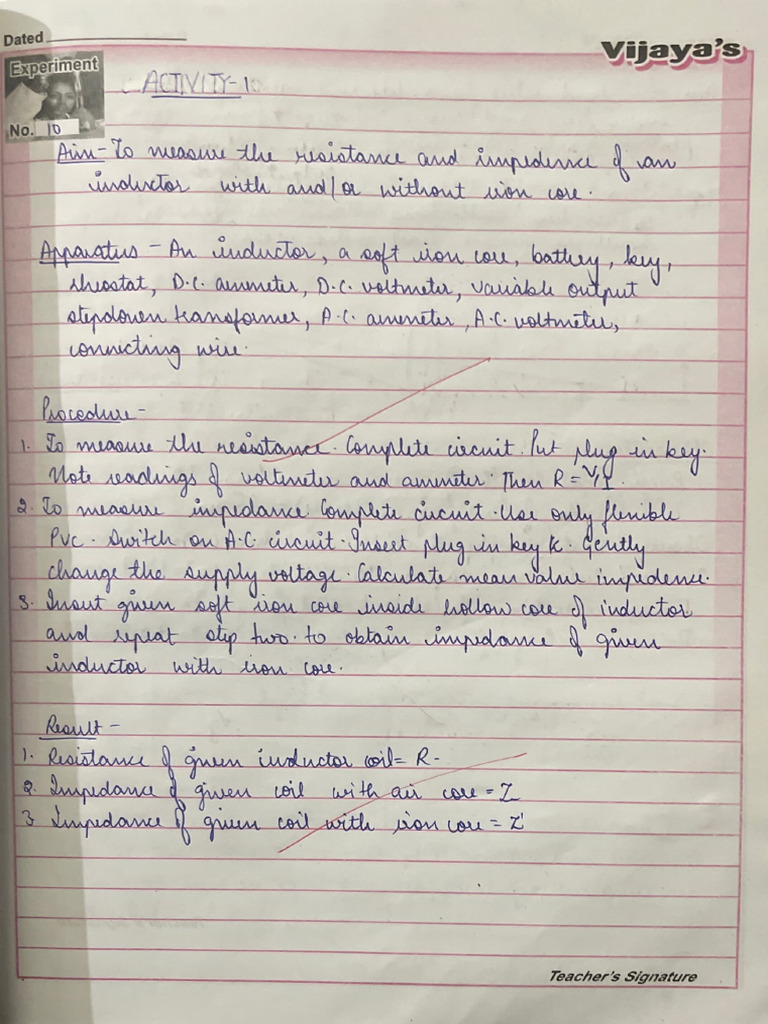 Dated
Vijaya's
Experiment
No. 10
ACTIVITY-10
Aim- To measure the resistance and impedence of an
inductor with and/or without iron core.
Apparatus - An inductor, a soft iron core, battery, key,
rheostat, D.C. ammeter, D.C. voltmeter, variable output
stepdown transformer, A.C. ammeter, A.C. voltmeter,
connecting wire.
Procedure -
1. To measure the resistance. Complete circuit. Put plug in key.
Note readings of voltmeter and ammeter. Then R = V/I.
2. To measure impedance. Complete circuit. Use only flexible
PVC. Switch on A.C. circuit. Insert plug in key K. Gently
change the supply voltage. Calculate mean value impedence.
3. Insert given soft iron core inside hollow core of inductor
and repeat step two. to obtain impedance of given
inductor with iron core.
Result -
1. Resistance of given inductor coil = R-
2. Impedance of given coil with air core = Z
3. Impedance of given coil with iron core = Z'
Teacher's Signature